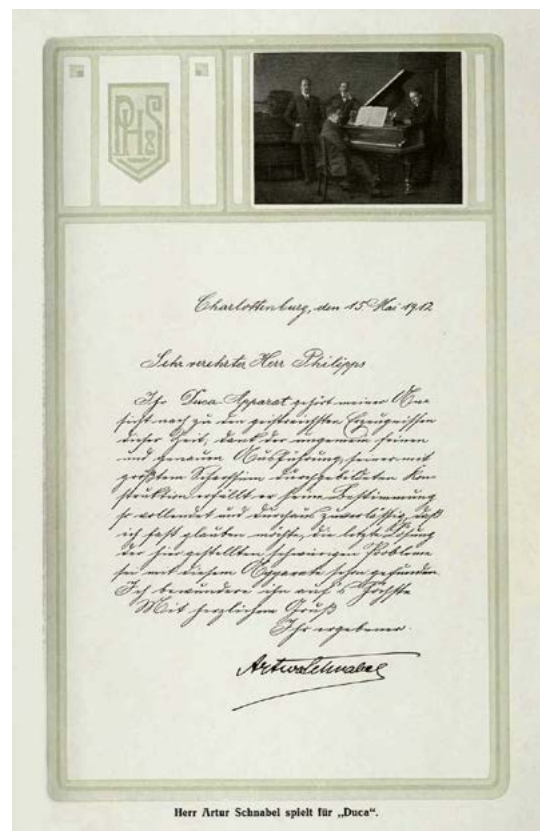 PH&S
Charlottenburg, den 15. Mai 1912
Sehr verehrter Herr Philipps
Ihr Duca-Apparat gehört meiner An-
sicht nach zu den geistreichsten Erzeugnissen
dieser Zeit, dank der ungemein feinen
und genauen Ausführung seiner mit
größtem Scharfsinn durchgebildeten Kon-
struktion erfüllt er seine Bestimmung
so vollendet und durchaus zuverlässig, daß
ich fast glauben möchte, die letzte Lösung
der hier gestellten schwierigen Probleme
sei mit diesem Apparate schon gefunden.
Ich bewundere ihn auf's Höchste
Mit herzlichem Gruß
Ihr ergebener
Artur Schnabel
Herr Artur Schnabel spielt für „Duca“.